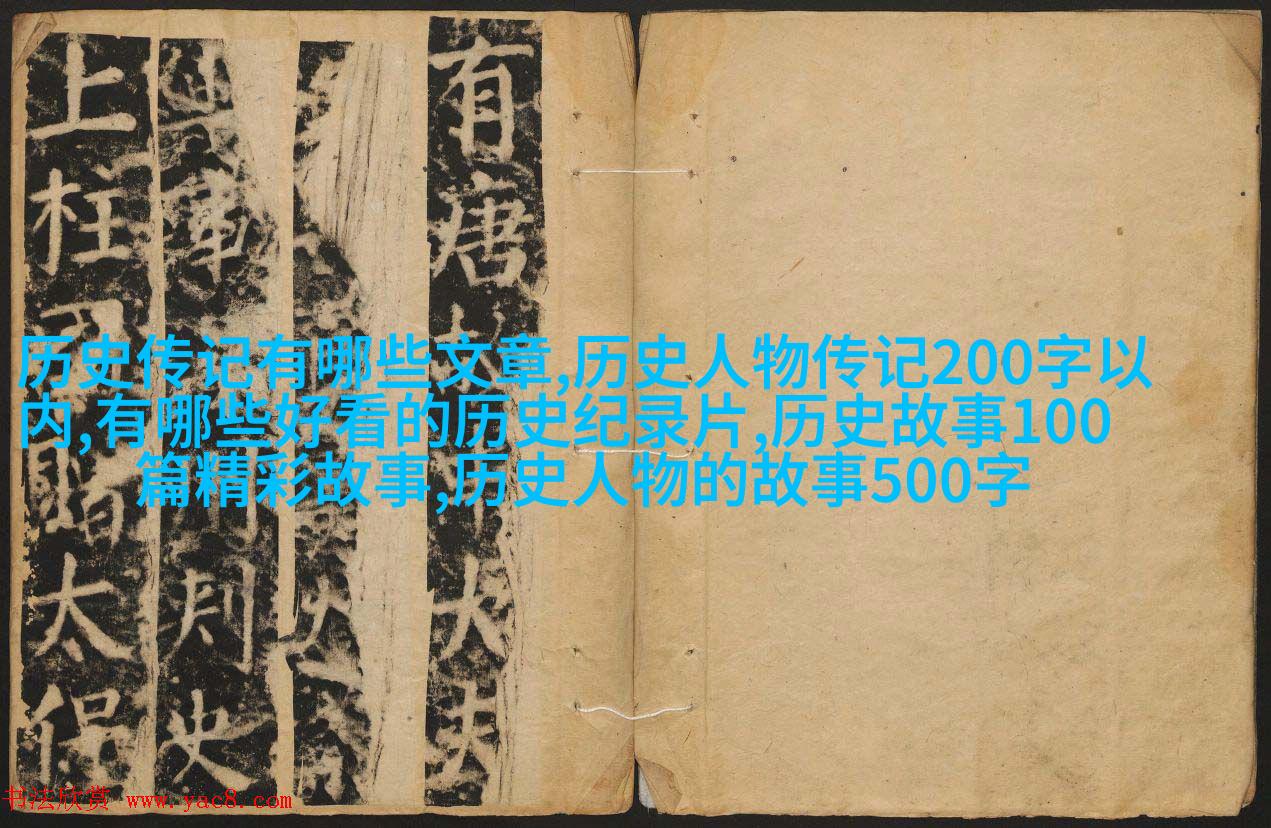 有唐故大夫
軍州刺史
上柱國贈太保
历史传记有哪些文章,历史人物传记200字以
内,有哪些好看的历史纪录片,历史故事100
篇精彩故事,历史人物的故事500字
书法欣赏 www.yac8.com